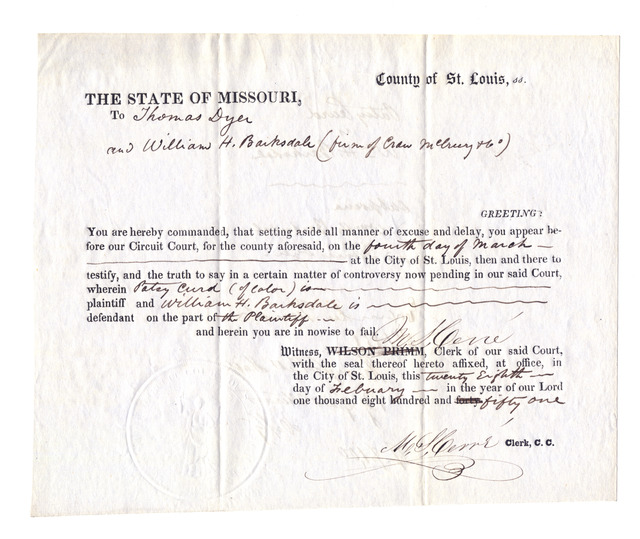 County of St. Louis, ss.
THE STATE OF MISSOURI,
To Thomas Dyer
and William H. Barksdale (firm of Crow McCreery & Co)
GREETING:
You are hereby commanded, that setting aside all manner of excuse and delay, you appear be-
fore our Circuit Court, for the county aforesaid, on the fourth day of March
at the City of St. Louis, then and there to
testify, and the truth to say in a certain matter of controversy now pending in our said Court,
wherein Patsy Curd (of color) is
plaintiff and William H. Barksdale is
defendant on the part of the Plaintiff
and herein you are in nowise to fail.
M. S. Cerré
Witness, WILSON PRIMM, Clerk of our said Court,
with the seal thereof hereto affixed, at office, in
the City of St. Louis, this twenty Eighth
day of Febuary in the year of our Lord
one thousand eight hundred and forty fifty one
M. S. Cerré Clerk, C. C.